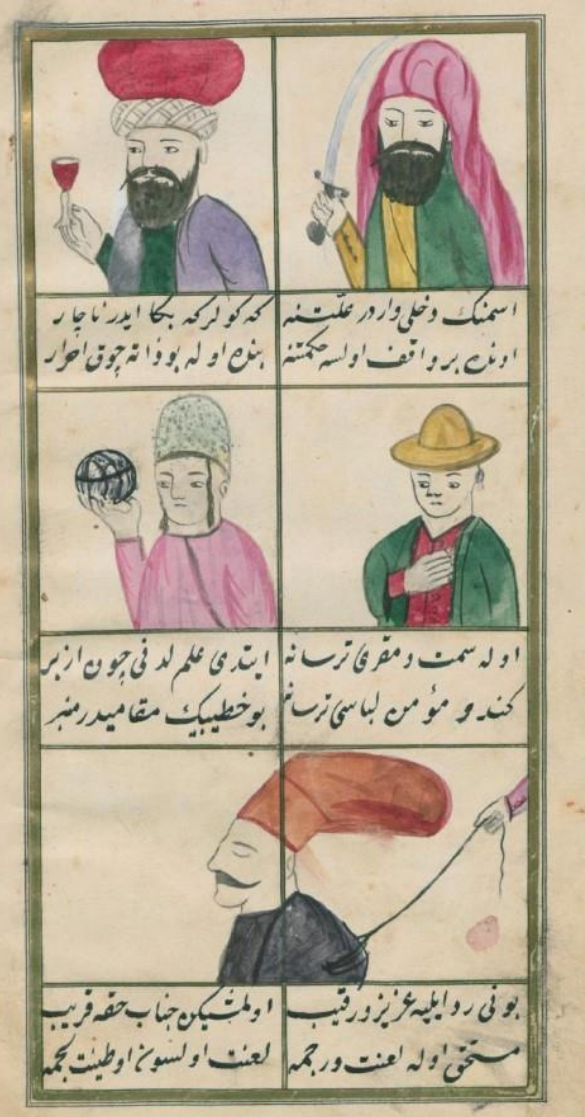 اسمنك دخلی واردر علتنه
اوندن بر واقف اولسه حكمتنه
كه كولر كه بكا ایدر ناچار
بنده اوله بو ذاته چوق احرار
اوله سمت و مقری ترسانه
كندو مؤمن لباسی ترسانه
ایتدی علم لدنی چون ازبر
بو خطیبك مقامیدر منبر
بونی رد ایلیه عزیز و رقیب
مستحق اوله لعنت و رجمه
اولمشیكن جناب حقه قریب
لعنت اولسون او طینت